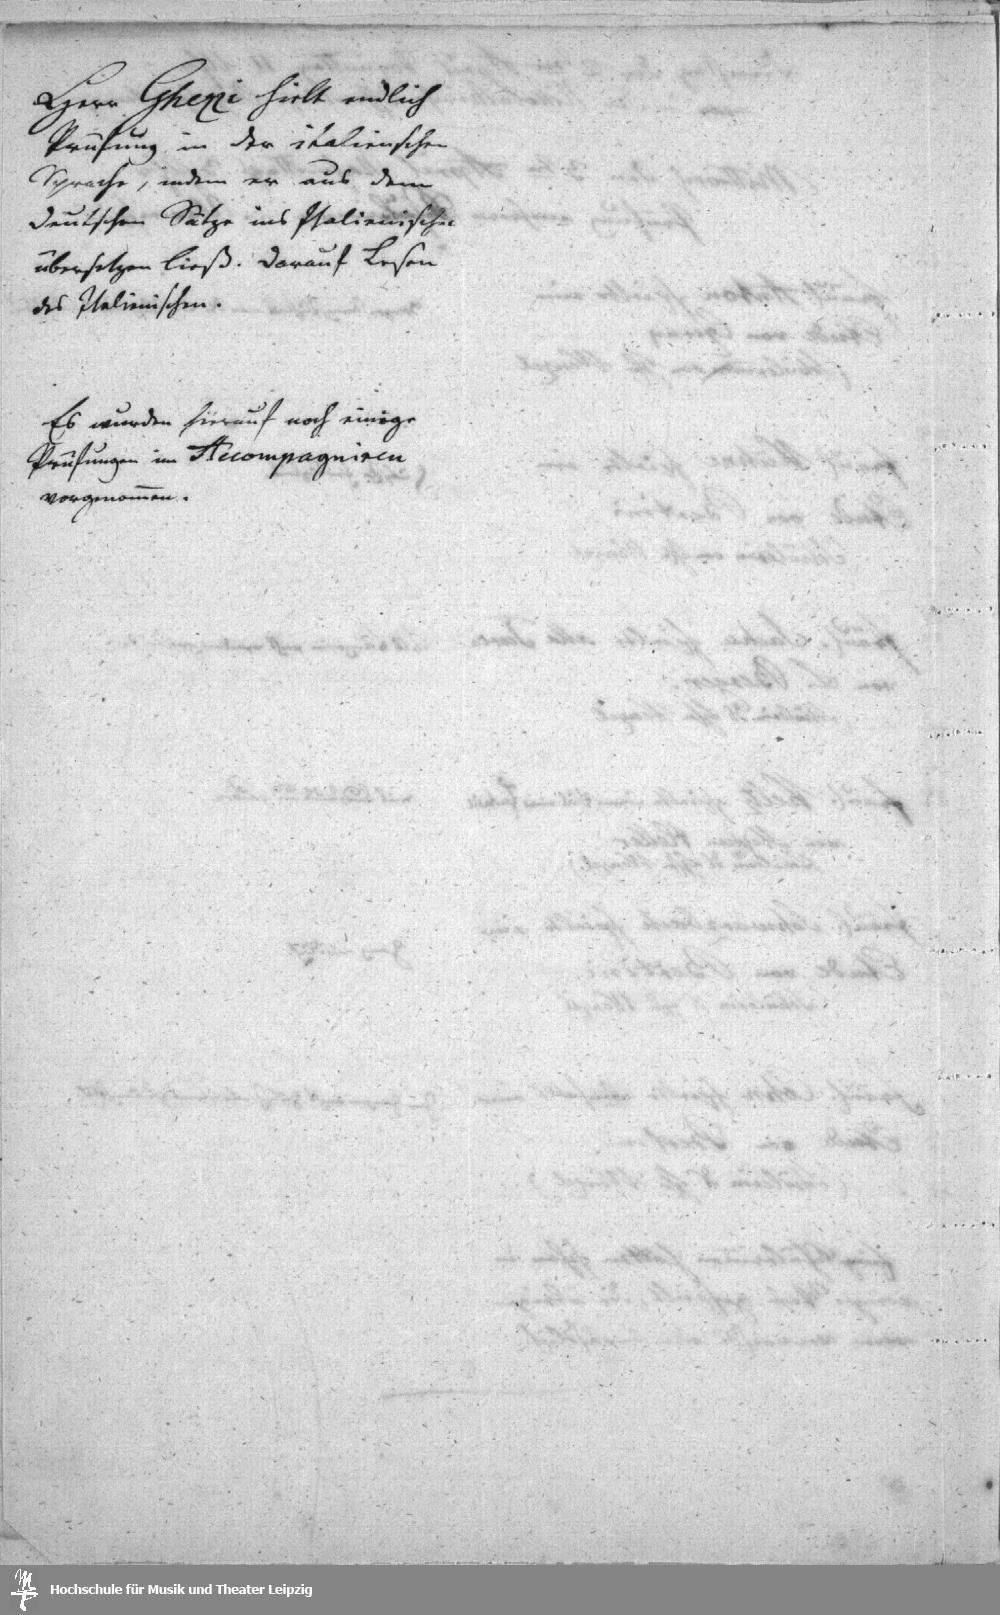 Herr Ghezzi hielt endlich
Prüfung in der italienischen
Sprache, indem er aus dem
Deutschen Sätze ins Italienische
übersetzen ließ. Darauf Lesen
des Italienischen.
Es wurden hierauf noch einige
Prüfungen im Accompagniren
vorgenom̅en.
Hochschule für Musik und Theater Leipzig